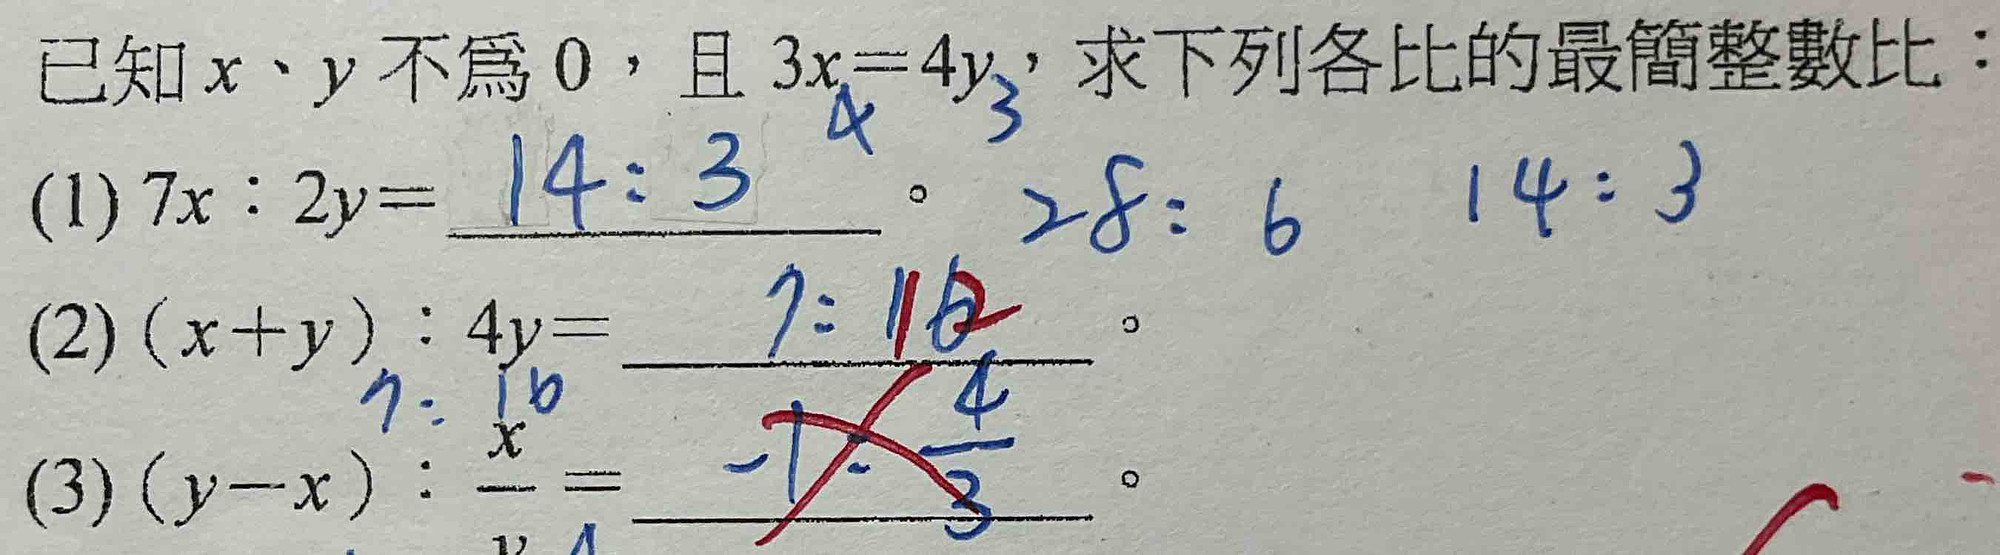 已知 x、y 不為 0，且 3x=4y，求下列各比的最簡整數比：
4 3
(1) 7x：2y= 14:3 。 28:6 14:3
(2)（x+y）：4y= 7:12 。
7:16
(3)（y－x）：x/y= -1:4/3 。